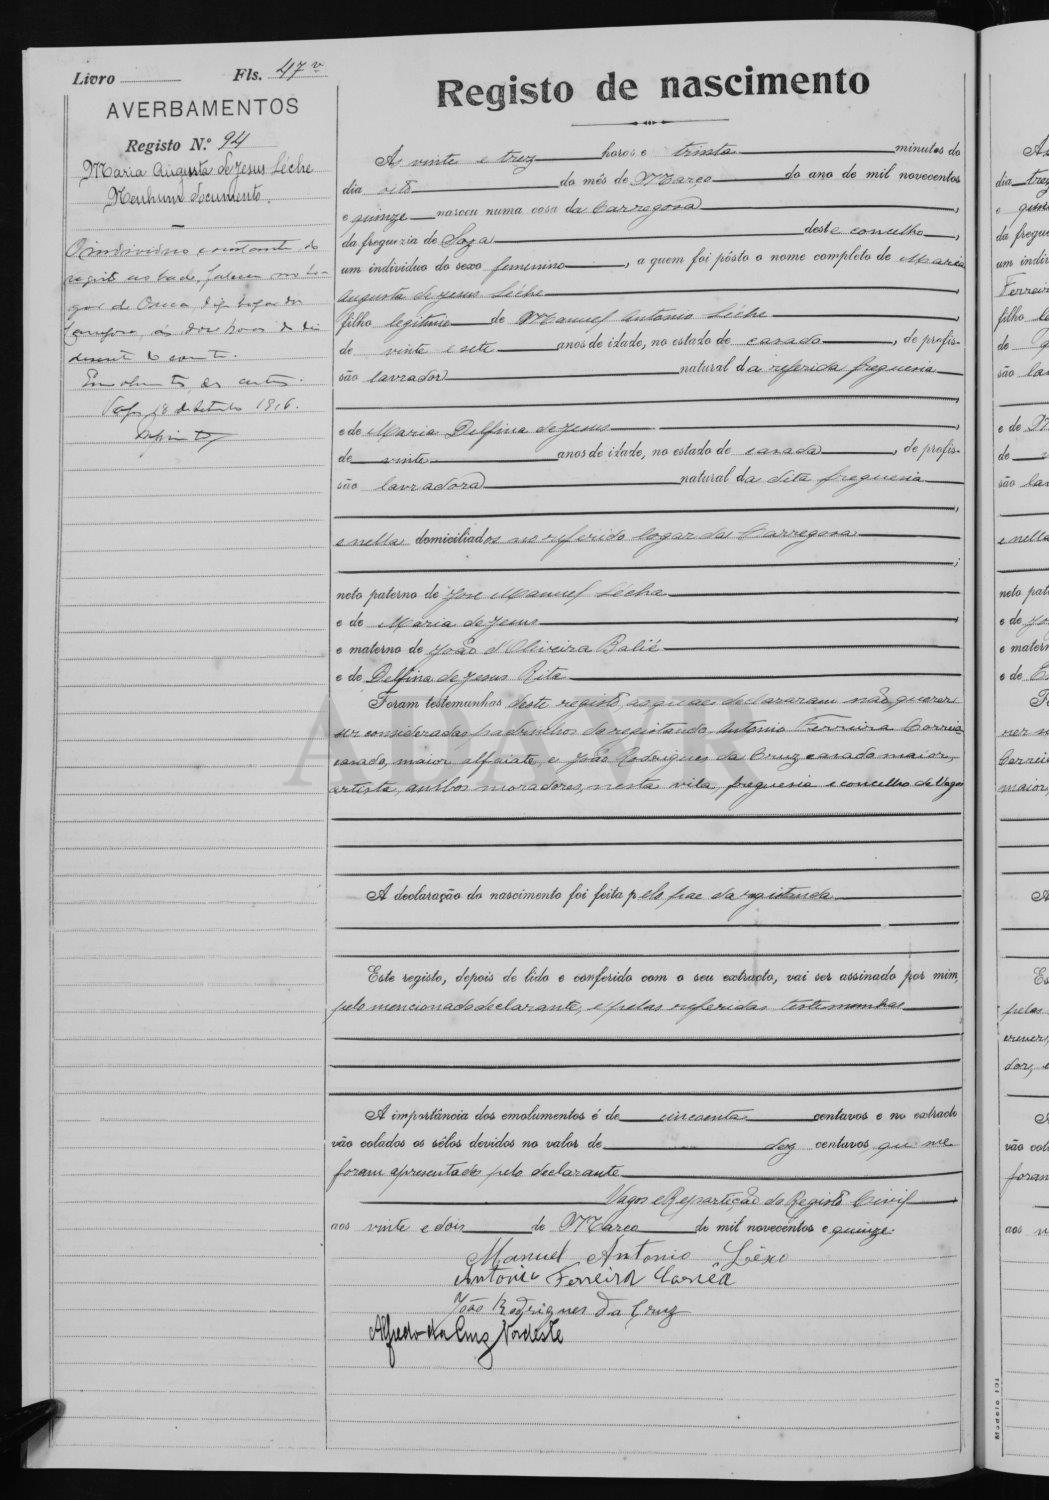 Livro Fls. 47 v
AVERBAMENTOS
Registo N.º 94
Maria Augusta de Jesus Léche
Nenhum documento.
O individuo constante do
registo ao lado, faleceu no lo-
gar de
ás doze horas do dia
de Setembro 1916.
Registo de nascimento
Ás vinte e trez horas e trinta minutos do
dia oito do mês de Março do ano de mil novecentos
e quinze nasceu numa casa da Carregosa,
da freguezia de Soza deste concelho,
um individuo do sexo femenino, a quem foi pôsto o nome completo de Maria
Augusta de Jesus Léche,
filho legitimo de Manuel Antonio Léche,
de vinte e sete anos de idade, no estado de casado, de profis-
são lavrador natural da referida freguesia
e de Maria Delfina de Jesus,
de vinte anos de idade, no estado de casada, de profis-
são lavradora natural da dita freguesia
e nella domiciliados no referido logar da Carregosa
neto paterno de José Manuel Lécha
e de Maria de Jesus
e materno de João d'Oliveira Balié
e de Delfina de Jesus Rita
Foram testemunhas deste registo, as quaes declararam não querer
ser consideradas padrinhos da registanda, Antonio Ferreira Correia
casado, maior alfaiate, e João Rodrigues da Cruz casado maior,
artista, ambos moradores, nesta vila, freguesia e concelho de Vagos
A declaração do nascimento foi feita pelo pae da registanda
Este registo, depois de lido e conferido com o seu extracto, vai ser assinado por mim,
pelo mencionado declarante, e pelas referidas testemunhas
A importância dos emolumentos é de cincoenta centavos e no extracto
vão colados os sêlos devidos no valor de dez centavos, que me
foram apresentados pelo declarante
Vagos e Repartição do Registo Civil
aos vinte e dois de Março de mil novecentos e quinze.
Manuel Antonio Léxo
Antonio Ferreira Corrêa
João Rodrigues da Cruz
Alfredo da Cruz Nordeste
ADAVR
Modelo 101